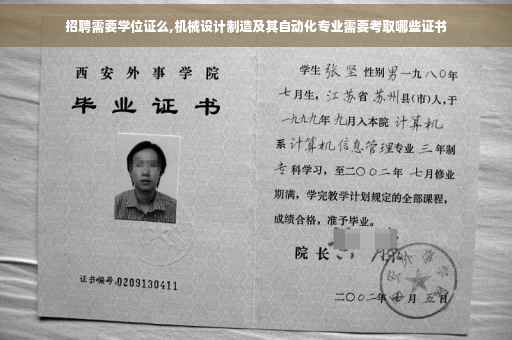 招聘需要学位证么,机械设计制造及其自动化专业需要考取哪些证书
西安外事学院
毕业证书
证书编号:0209130411
学生 张坚 性别 男 一九八〇年
七月生，江苏省 苏州县(市)人,于
一九九九年 九月入本院 计算机
系 计算机信息管理专业 三 年制
专科学习，至二〇〇二年 七月修业
期满，学完教学计划规定的全部课程，
成绩合格，准予毕业。
院长
二〇〇二年 七月 五日